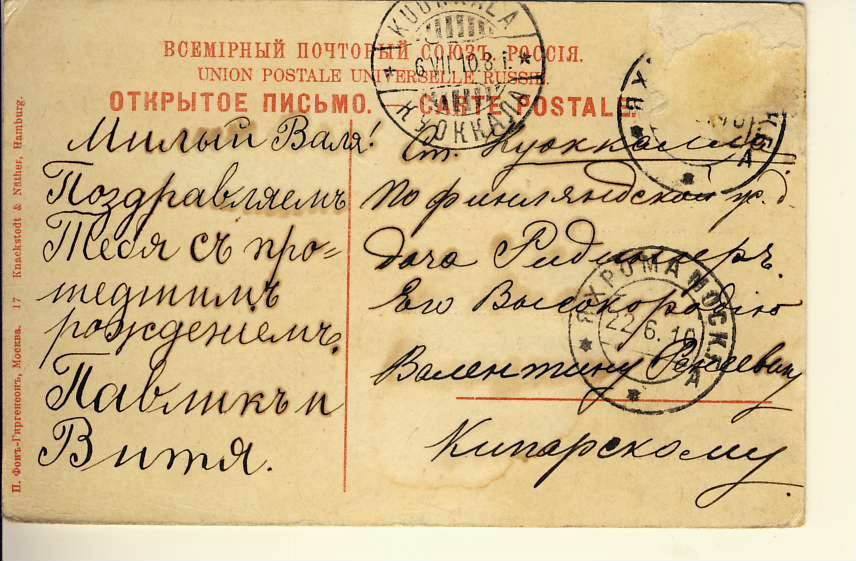 ВСЕМІРНЫЙ ПОЧТОВЫЙ СОЮЗЪ. РОССІЯ.
UNION POSTALE UNIVERSELLE. RUSSIE.
ОТКРЫТОЕ ПИСЬМО. — CARTE POSTALE
KUOKKALA
6.VII.10.8 i.
КУОККАЛА
Милый Валя!
Поздравляемъ
Тебя съ про=
шедшимъ
рожденіемъ.
Павликъ и
Витя.
Ст. Куоккала
по финляндской ж. д.
дача Ридингеръ.
Его Высокородію
Валентину
Кипарскому.
ЯХРОМА МОСК.
22.6.10
П. Фонъ-Гиргенсонъ, Москва. 17 Knackstedt & Näther, Hamburg.